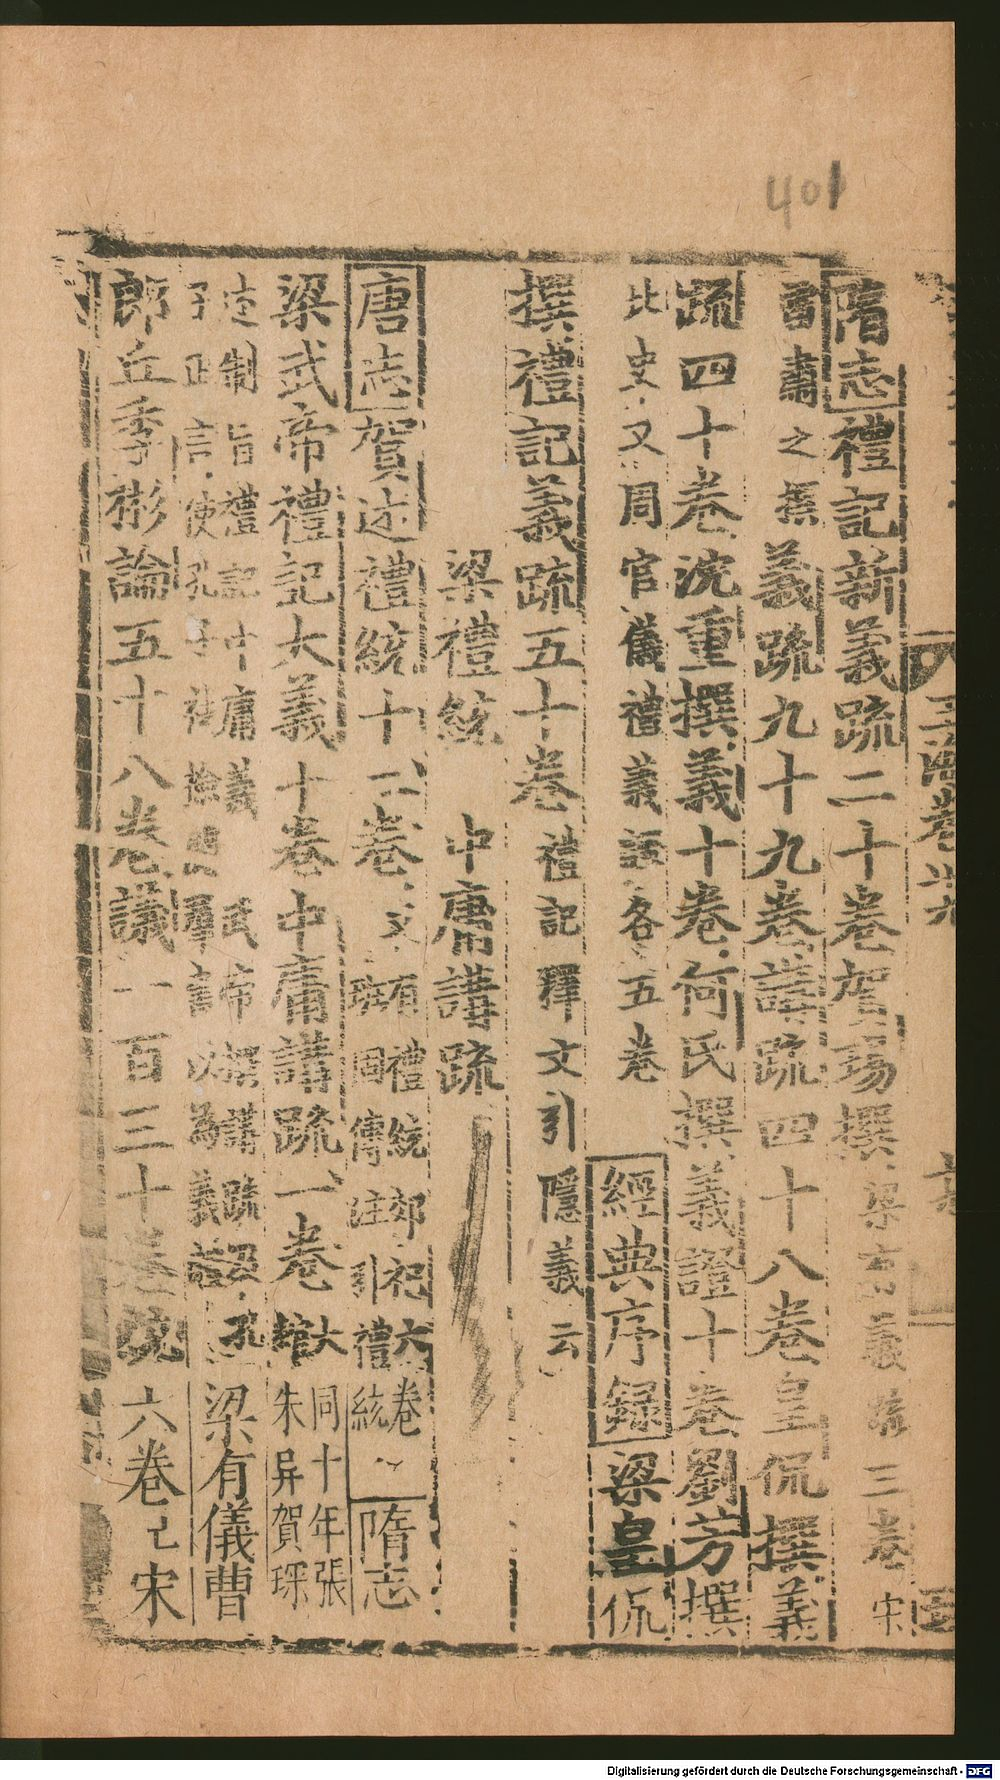 401
隋志禮記新義疏二十卷賀瑒撰梁有義疏三卷宋
肅之撰義疏九十九卷講疏四十八卷皇侃撰義
疏四十卷沈重撰義十卷何氏撰義證十卷劉芳撰
北史又周官儀禮義證各五卷 經典序録梁皇侃
撰禮記義疏五十卷禮記釋文引隱義云
梁禮統 中庸講疏
唐志賀述禮統十二卷又有禮統郊祀六卷
班固傳注引禮統 隋志
梁武帝禮記大義十卷中庸講疏一卷大同十年張
朱异賀琛
制旨禮記中庸義 武帝撰講疏 孔
子正言使孔子 羣言以為義
梁有儀曹
郎丘季彬論五十八卷議一百三十卷統六卷亡宋
Digitalisierung gefördert durch die Deutsche Forschungsgemeinschaft - DFG